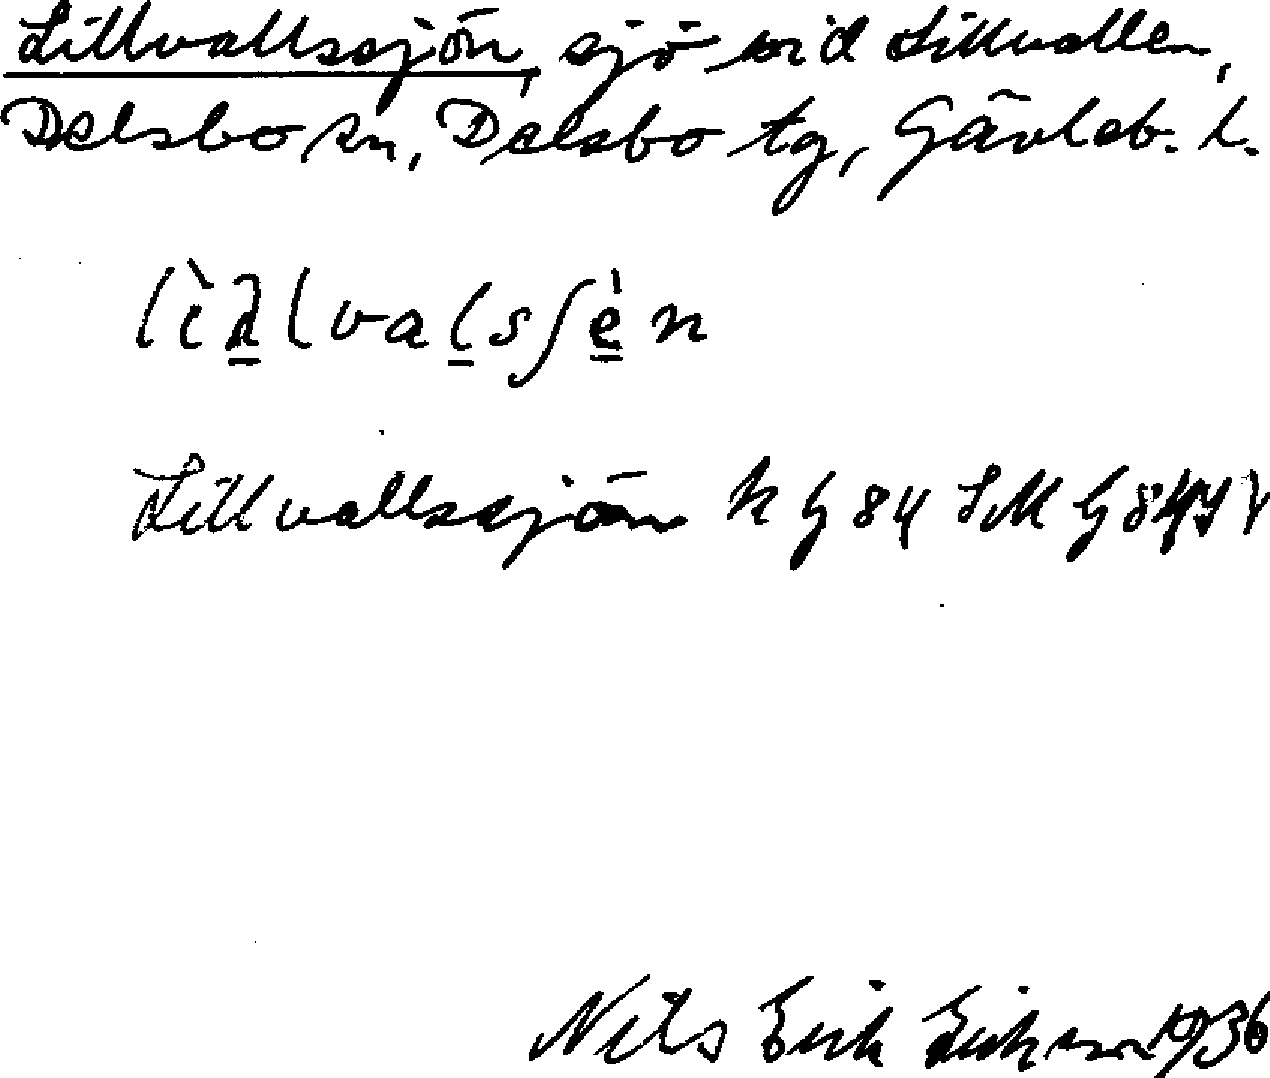 Lillvallssjön, sjö vid Lillvallen,
Delsbo sn, Delsbo tg, Gävleb. l.
Lillvallssjön k G 84 SMG
Nils Erik Eriksson 1936